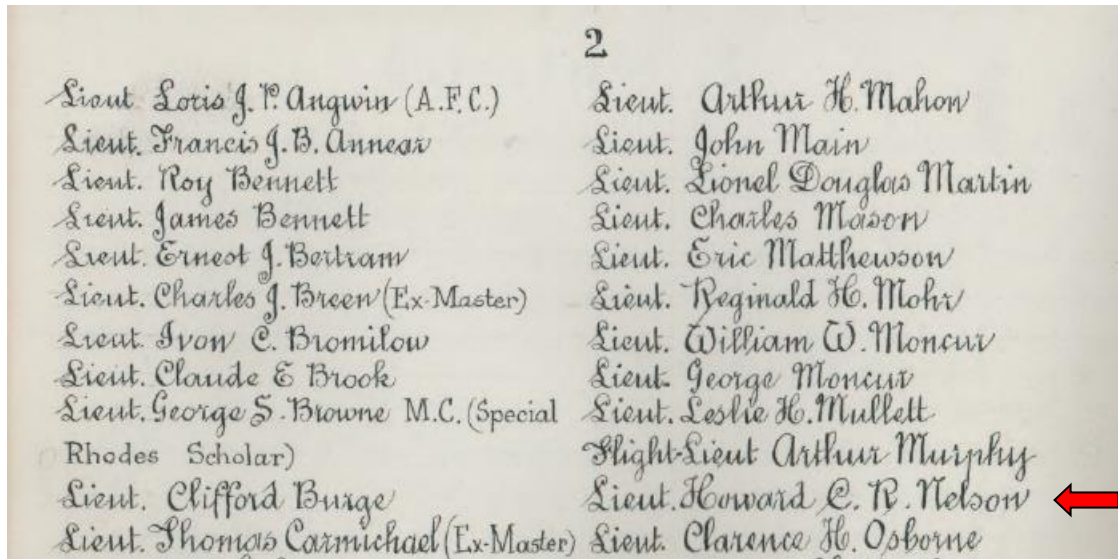 2
Lieut. Loris J. P. Angwin (A.F.C.)
Lieut. Francis J. B. Annear
Lieut. Roy Bennett
Lieut. James Bennett
Lieut. Ernest J. Bertram
Lieut. Charles J. Breen (Ex-Master)
Lieut. Ivon C. Bromilow
Lieut. Claude E Brook
Lieut. George S. Browne M.C. (Special
Rhodes Scholar)
Lieut. Clifford Burge
Lieut. Thomas Carmichael (Ex-Master)
Lieut. Arthur H. Mahon
Lieut. John Main
Lieut. Lionel Douglas Martin
Lieut. Charles Mason
Lieut. Eric Matthewson
Lieut. Reginald H. Mohr
Lieut. William W. Moncur
Lieut. George Moncur
Lieut. Leslie H. Mullett
Flight-Lieut Arthur Murphy
Lieut. Howard C. R. Nelson
Lieut. Clarence H. Osborne